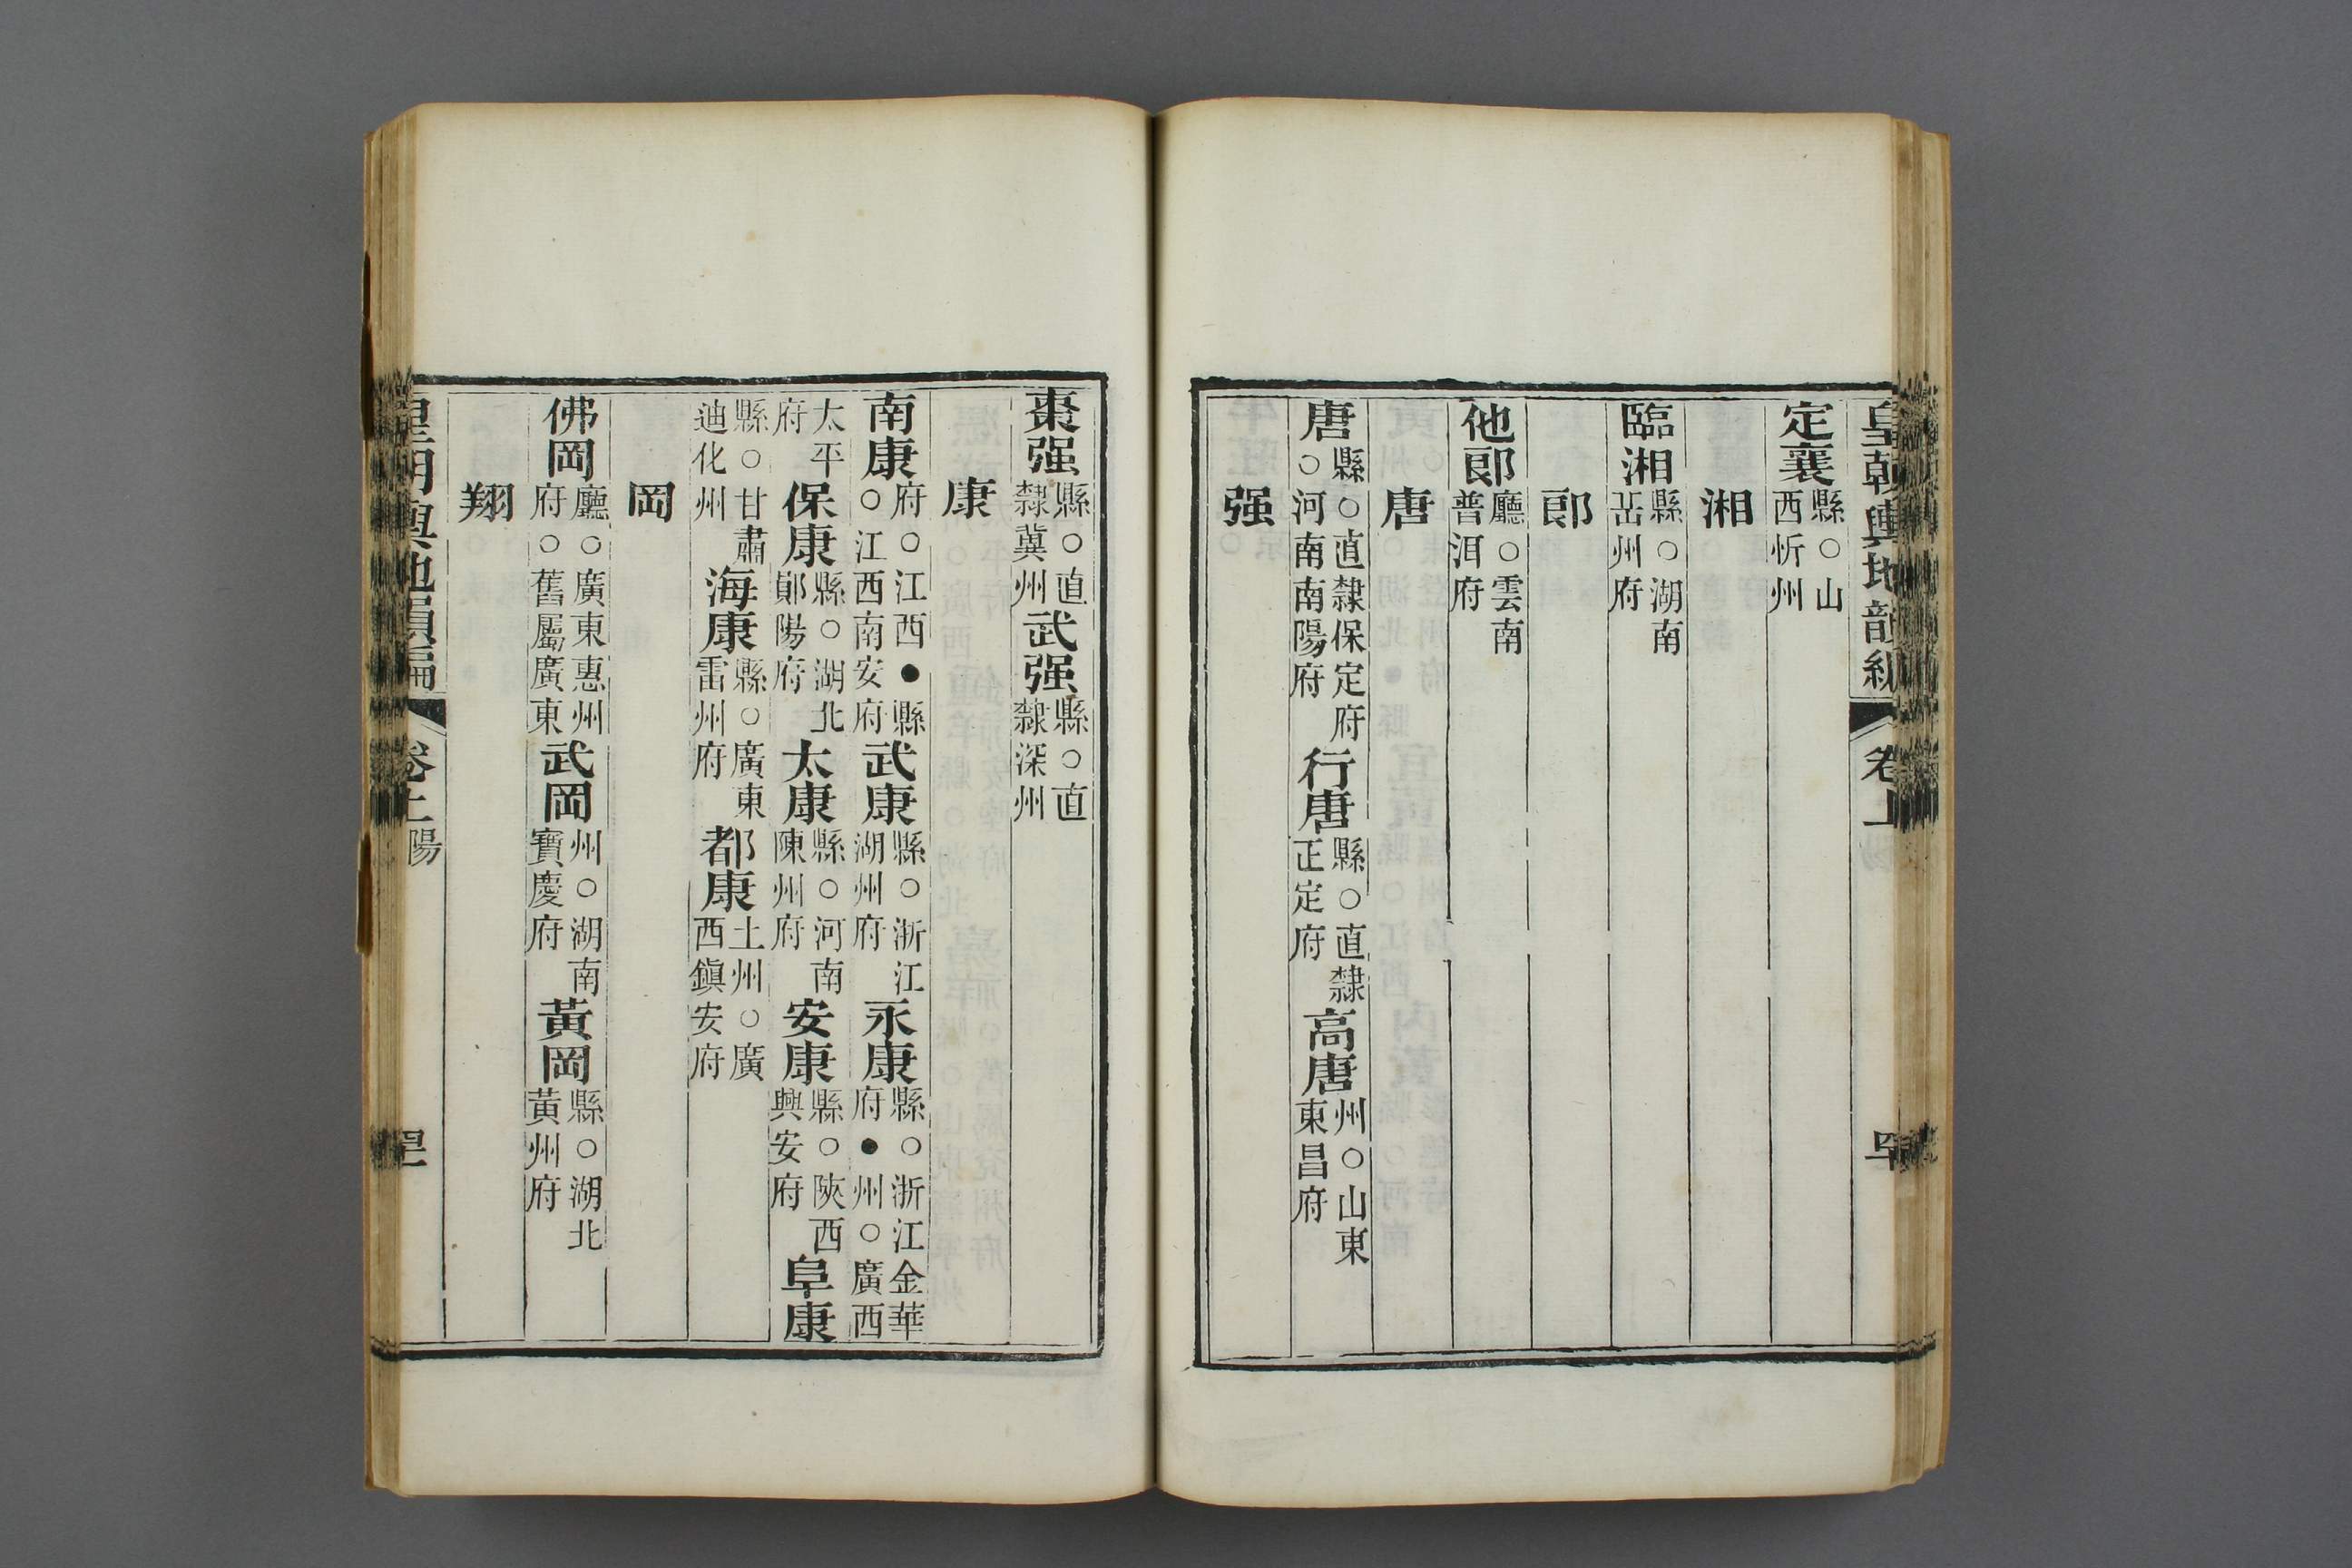 皇朝輿地韻編 卷上
定襄縣○山西忻州
湘
臨湘縣○湖南岳州府
郎
他郎廳○雲南普洱府
唐
唐縣○直隸保定府○河南南陽府 行唐縣○直隸正定府 高唐州○山東東昌府
强
棗强縣○直隸冀州 武强縣○直隸深州
康
南康府○江西●縣○江西南安府 武康縣○浙江湖州府 永康縣○浙江金華府●州○廣西
太平府 保康縣○湖北鄖陽府 太康縣○河南陳州府 安康縣○陝西興安府 阜康
縣○甘肅迪化州 海康縣○廣東雷州府 都康土州○廣西鎭安府
岡
佛岡廳○廣東惠州府○舊屬廣東 武岡州○湖南寶慶府 黃岡縣○湖北黃州府
翔
皇朝輿地韻編 卷上 陽